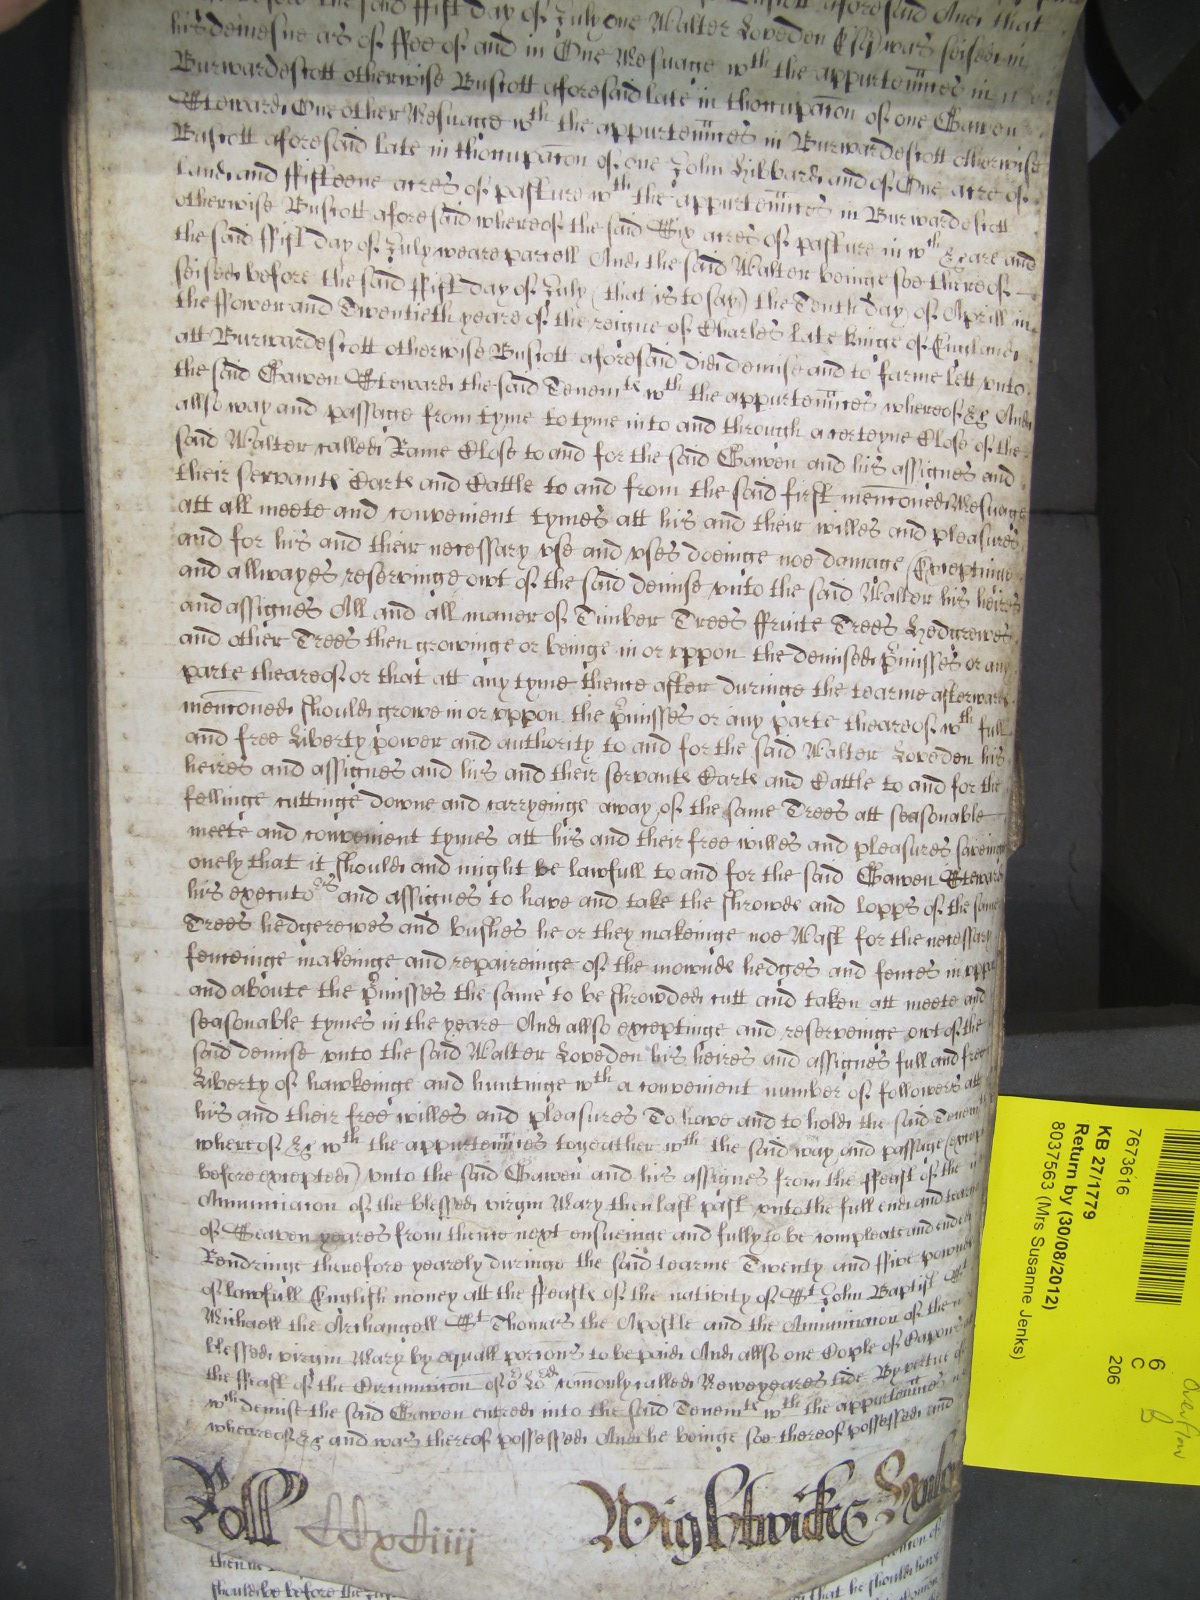 before the said ffift day of July one Walter Loveden Esq was seised in
his demesne as of ffee of and in One Mesuage wth the appurtennces in
Burwardescott otherwise Buscott aforesaid late in thoccupacon of one Gawen
Steward One other Mesuage wth the appurtennces in Burwardescott otherwise
Buscott aforesaid late in thoccupacon of one John Hibbard and of One acre of
land and ffifteene acres of pasture wth the appurtennces in Burwardescott
otherwise Buscott aforesaid whereof the said Six acres of pasture in wch &c are and
the said ffift day of July weare parcell And the said Walter beinge soe thereof
seised before the said ffift day of July (that is to say) the Tenth day of Aprill in
the ffower and Twentieth yeare of the reigne of Charles late Kinge of England
att Burwardescott otherwise Buscott aforesaid did demise and to farme lett unto
the said Gawen Steward the said Tenemts wth the appurtennces whereof &c And
allso way and passage from tyme to tyme into and through a certeyne Close of the
said Walter called Rame Close to and for the said Gawen and his assignes and
their servants Carts and Cattle to and from the said first menconed Mesuage
att all meete and convenient tymes att his and their willes and pleasures
and for his and their necessary use and uses doeinge noe damage (Exceptinge
and allwayes reservinge owt of the said demise unto the said Walter his heires
and assignes All and all maner of Timber Trees ffruite Trees Hedgrewes
and other Trees then growinge or beinge in or uppon the demised pmisses or any
parte theareof or that att any tyme thence after duringe the tearme afterwards
menconed should growe in or uppon the pmisses or any parte theareof wth full
and free Liberty power and authority to and for the said Walter Loveden his
heires and assignes and his and their servants Carts and Cattle to and for the
fellinge cuttinge downe and carryeinge away of the same Trees att seasonable
meete and convenient tymes att his and their free willes and pleasures saveinge
onely that it should and might be lawfull to and for the said Gawen Steward
his executors and assignes to have and take the shrowds and lopps of the same
Trees hedgerewes and bushes he or they makeinge noe Wast for the necessary
fenceinge makeinge and repaireinge of the mownds hedges and fences in uppon
and aboute the pmisses the same to be shrowded cutt and taken att meete and
seasonable tymes in the yeare And allso exceptinge and reserveinge owt of the
said demise unto the said Walter Loveden his heires and assignes full and free
Liberty of hawkeinge and huntinge wth a convenient number of followers att
his and their free willes and pleasures To have and to hold the said Tenemts
whereof &c wth the appurtennces togeather wth the said way and passage (except
before excepted) unto the said Gawen and his assignes from the ffeast of the
Annunciacon of the blessed virgin Mary then last past unto the full end and tearme
of Seaven yeares from thence next ensueinge and fully to be compleate and ended
Rendringe therefore yearely duringe the said tearme Twenty and ffive pownds
of lawfull English money att the ffeasts of the nativity of St John Baptist St
Michaell the Archangell St Thomas the Apostle and the Annunciacon of the
blessed virgin Mary by equall porcons to be paid And allso one Cople of Capons
the ffeast of the Circumcicon of or Lord comonly called Neweyeares tide By vertue of
wch demise the said Gawen entred into the said Tenemts wth the appurtennces
wheareof &c and was thereof possessed And he beinge soe thereof possessed and
Roll CCxCiiii Wightwicke
should be before the
that he should have
7673616
KB 27/1779
Return by (30/08/2012)
8037563 (Mrs Susanne Jenks)
6
C
206